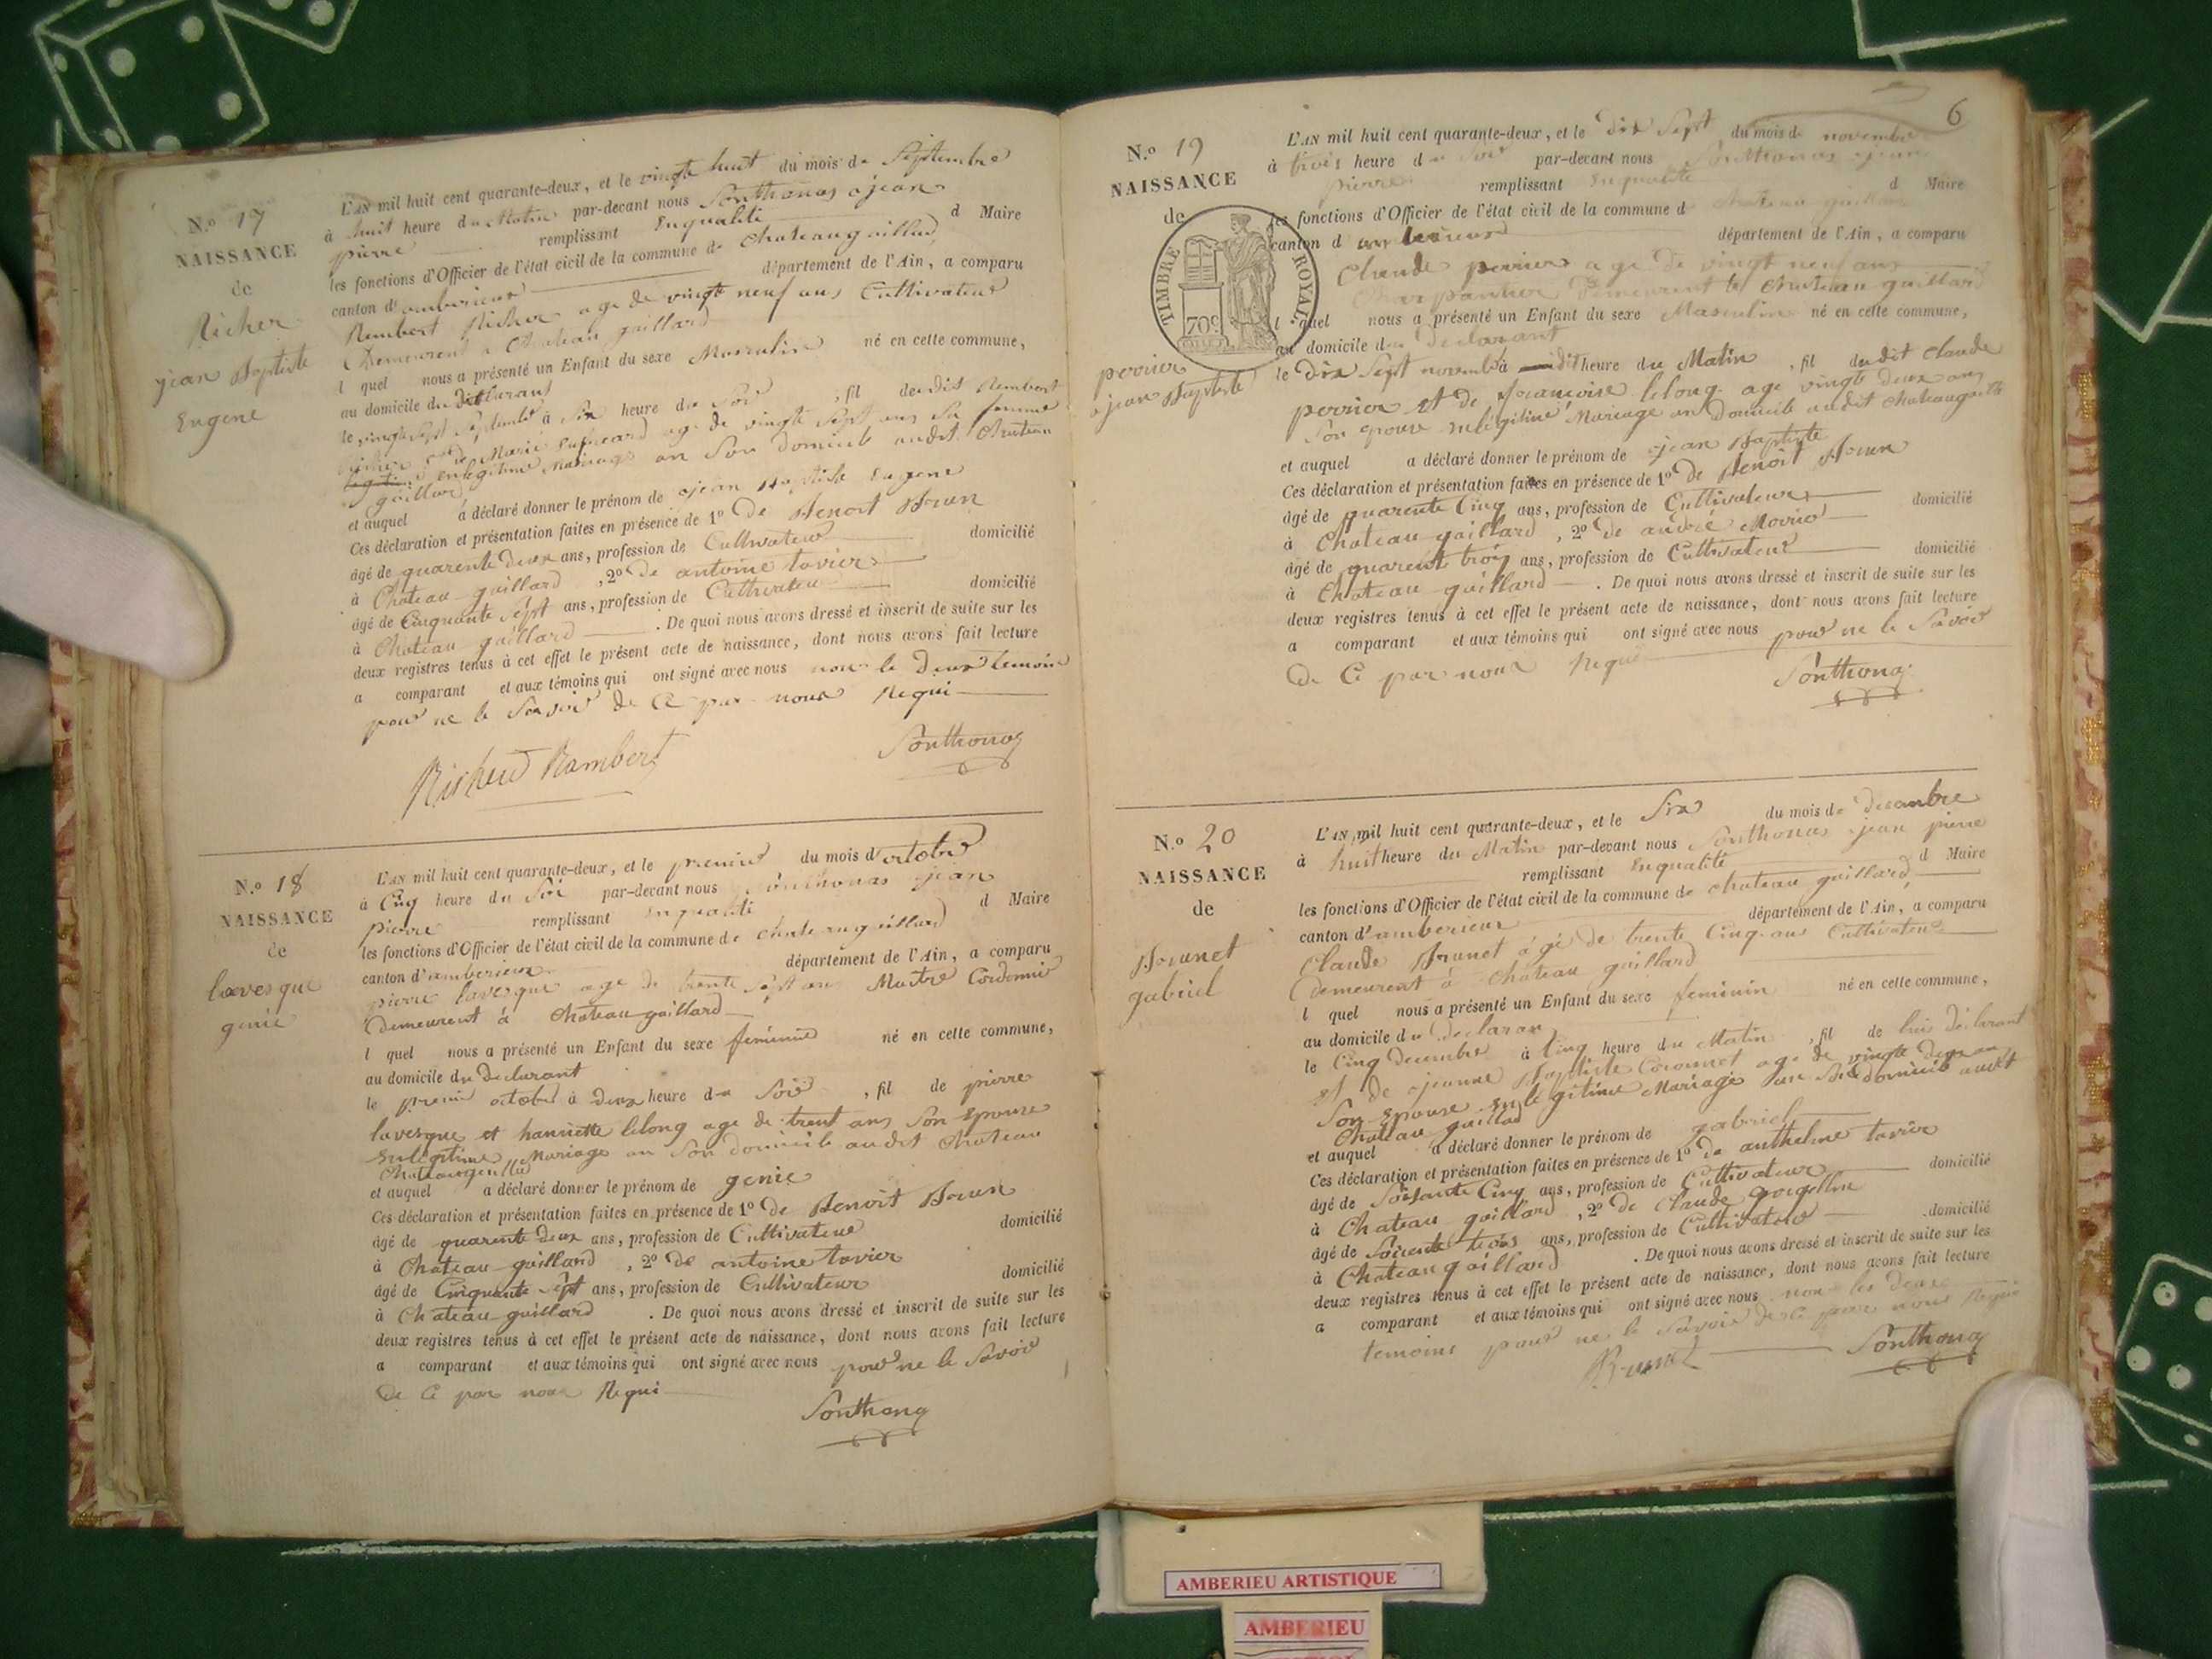 N.o 17
NAISSANCE
de
Richer
jean Baptiste
Eugene
L'AN mil huit cent quarante-deux, et le vingte huit du mois de Septembre
à huit heure du Matin par-devant nous Sonthonas jean
pierre remplissant Enqualité d Maire
les fonctions d'Officier de l'état civil de la commune de Chateaugaillard
canton d'amberieux département de l'Ain, a comparu
Rembert Richer age de vingte neuf ans Cultivateur
Demeurent a Chateau gaillard
l quel nous a présenté un Enfant du sexe Masculin né en cette commune,
au domicile du declarant
le vingte Sept Septembre à Six heure du Soir , fil dudit Rembert
Richer et de Marie age de vingte Sept ans Sa femme
enlegitime Mariage an Son domicile audit Chateau
gaillard
et auquel a déclaré donner le prénom de jean Baptiste Eugene
Ces déclaration et présentation faites en présence de 1o De Benoit Brun
âgé de quarente deux ans, profession de Cultivateur domicilié
à Chateau gaillard , 2o De antoine tavier
âgé de Cinquante Sept ans, profession de Cultivateur domicilié
à Chateau gaillard . De quoi nous avons dressé et inscrit de suite sur les
deux registres tenus à cet effet le présent acte de naissance, dont nous avons fait lecture
a comparant et aux témoins qui ont signé avec nous non le deux temoin
pour ne le Savoir de Ce par nous Requi
Richerd Rambert Sonthonas
N.o 18
NAISSANCE
de
lavesque
genie
L'AN mil huit cent quarante-deux, et le premier du mois d'octobre
à Cinq heure du Soir par-devant nous Sonthonas jean
Pierre remplissant Enqualité d Maire
les fonctions d'Officier de l'état civil de la commune de Chateaugaillard
canton d'amberieux département de l'Ain, a comparu
pierre lavesque age de trente Sept ans Maitre Cordonnier
Demeurent à Chateaugaillard
l quel nous a présenté un Enfant du sexe feminin né en cette commune,
au domicile du Declarant
le premier octobre à deux heure du Soir , fil de pierre
lavesque et hanriette lelong age de trent ans Son epouse
enlegitime Mariage an Son domicile audit Chateau
Chateaugaillard
et auquel a déclaré donner le prénom de genie
Ces déclaration et présentation faites en présence de 1o De Benoit Brun
âgé de quarente deux ans, profession de Cultivateur domicilié
à Chateau gaillard , 2o De antoine tavier
âgé de Cinquante Sept ans, profession de Cultivateur domicilié
à Chateau gaillard . De quoi nous avons dressé et inscrit de suite sur les
deux registres tenus à cet effet le présent acte de naissance, dont nous avons fait lecture
a comparant et aux témoins qui ont signé avec nous pour ne le Savoir
de Ce par nous Requi
Sonthonas
6
N.o 19
NAISSANCE
de
TIMBRE ROYAL
70c
perrier
jean Baptiste
L'AN mil huit cent quarante-deux, et le dix Sept du mois de novembre
à trois heure du Soir par-devant nous Sonthonas jean
pierre remplissant Enqualité d Maire
les fonctions d'Officier de l'état civil de la commune d Chateau gaillard
canton d amberieux département de l'Ain, a comparu
Claude perrier age De vingt neuf ans
Charpantier Demeurent à Chateau gaillard
l quel nous a présenté un Enfant du sexe Masculin né en cette commune,
au domicile du Declarant
le Dix Sept novembre à heure du Matin , fil dudit Claude
perrier et de francoise lelong age vingte Deux ans
Son epouse enlegitime Mariage an Domicile audit Chateaugaillard
et auquel a déclaré donner le prénom de jean Baptiste
Ces déclaration et présentation faites en présence de 1o De Benoit Brun
âgé de quarente Cinq ans, profession de Cultivateur domicilié
à Chateau gaillard , 2o De andré
âgé de quarente trois ans, profession de Cultivateur domicilié
à Chateau gaillard . De quoi nous avons dressé et inscrit de suite sur les
deux registres tenus à cet effet le présent acte de naissance, dont nous avons fait lecture
a comparant et aux témoins qui ont signé avec nous pour ne le Savoir
De Ce par nous Requi
Sonthonas
N.o 20
NAISSANCE
de
Brunet
gabriel
L'AN mil huit cent quarante-deux, et le Six du mois de decambre
à huit heure du Matin par-devant nous Sonthonas jean pierre
remplissant Enqualité d Maire
les fonctions d'Officier de l'état civil de la commune de Chateau gaillard
canton d'amberieux département de l'Ain, a comparu
Claude Brunet âgé de trente Cinq ans Cultivateur
Demeurent à Chateau gaillard
l quel nous a présenté un Enfant du sexe feminin né en cette commune,
au domicile du Declaran
le Cinq Decembre à Cinq heure du Matin , fil de lui déclarant
et De jeanne Baptiste age de vingte Deux ans
Son epouse enlegitime Mariage an Son domicile audit
Chateau gaillard
et auquel a déclaré donner le prénom de gabriel
Ces déclaration et présentation faites en présence de 1o de anthelme tavier
âgé de Soisante Cinq ans, profession de Cultivateur domicilié
à Chateau gaillard , 2o De Claude
âgé de Soicente trois ans, profession de Cultivateur domicilié
à Chateaugaillard . De quoi nous avons dressé et inscrit de suite sur les
deux registres tenus à cet effet le présent acte de naissance, dont nous avons fait lecture
a comparant et aux témoins qui ont signé avec nous non les deux
temoins pour ne le Savoir de Ce par nous Requi
Brunet Sonthonas
AMBERIEU ARTISTIQUE
AMBERIEU